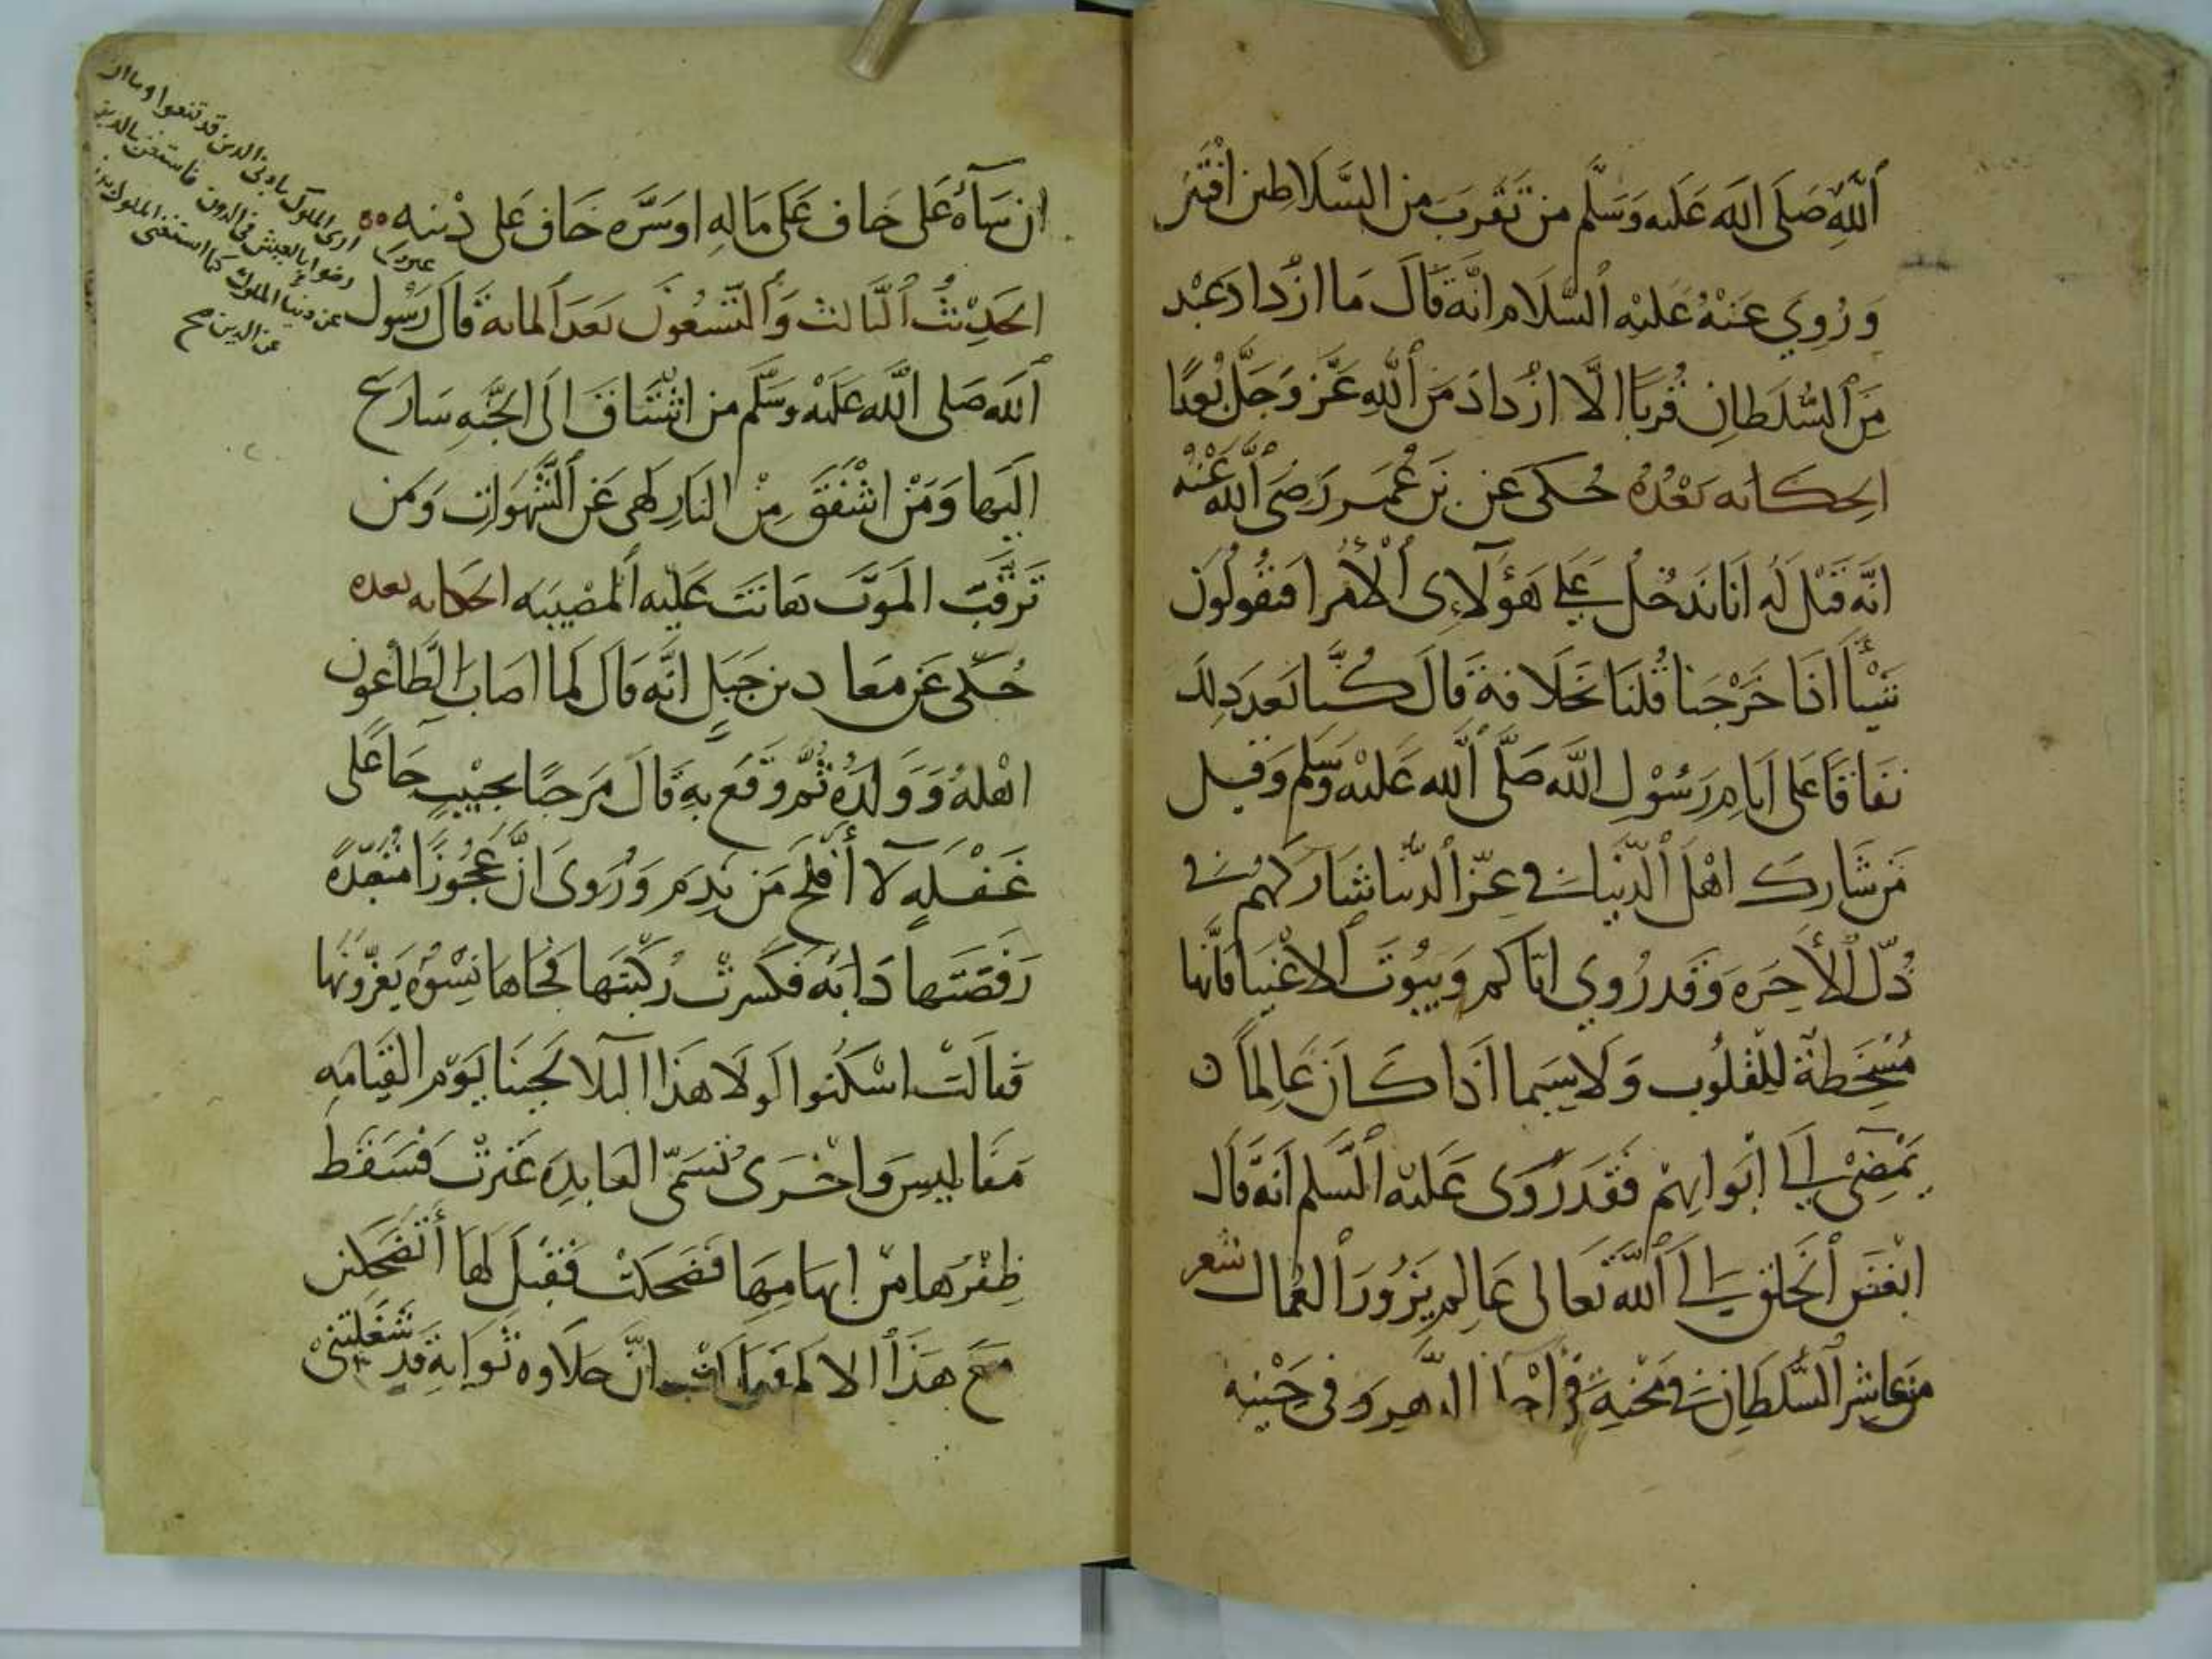 ٱللَّهِ صَلَى اللَه عَلَيه وَسَلَّم من تَقَربَ من السَّلاطِين افْتتَن
وَرُوِيَ عَنْهُ عَليْه ٱلسَّلَام انَّه قَالَ مَا ازْدادَ عَبْد
مِنَ ٱلسُّلطَانِ قُربًا الَّا ازْدادَ مَنَ ٱللهِ عَزَّ وَجَلَّ بُعْدًا
الحِكَايه بَعْدُهُ حُكى عَن بن عُمَر رَضِىَ ٱللَّه عَنْهُ
انَّه قَيْل لَه انَا نَدخُل عَلي هَؤلَآءِى ٱلأُمَرا فنقُولُون
شَيْأً اذَا خَرْجَنا قُلنَا بخَلَافهِ قَالَ كُنَّا نَعدَ دلك
نفَاقًا عَلى ايَامِ رَسُوْل اللَّه صَلَّى ٱللَّه عَليْه وَسَلم وَقيل
مَن شَارك اهْل ٱلدّنيَا في عِزّ ٱلدنيا شَارَكهم في
ذُلّ ٱلأخِرَه وَقَد رُوي ايَّاكم وَبيُوتَ ٱلاغْنيَا فَانّها
مُسْخِطَة لِلْقلُوب وَلا سِيَما اذَا كَانَ عَالِمًا
يَمْضِيْ الي ابْوابِهمْ فَقَد رُوَى عَليْه ٱلسَّلم انَّه قَال
ابْغَضَ ٱلخَلق الي ٱللَّه تَعَالى عَالِم يَزُورَ ٱلعُمال شعر
مَن عَاشر ٱلسُّلطَانَ في مَحْنِهِ الدَّهرِ وَفى حَيْنِه
ان سَآءهُ عَلى خاف عَلى مَالهِ اوسَرَّه خَاف عَلى دْينه
الحَدِيْثُ ٱلثَّالث وَٱلتّسْعُونَ بَعدَ ٱلمايه قَالَ رَسُول
ٱللَه صَلى ٱللَّه عَليْه وسَلَّم من اشْتَاقَ الَى الجَنَّهِ سَارَع
الَيهَا وَمَنْ اشْفَقَ مِنْ النَارِ لهى عَن ٱلشَّهَوات وَمَن
تَرقَّبَ الَموتَ هَانَت عَلَيه ٱلمُصْيبَه الحَكايه بعده
حُكى عَن مَعا د بن جَبَلٍ انَّه قَالَ لمَا اصَابَ الطَّاعُون
اهْلهُ وَوَلَدهُ ثُمَّ وَقعَ بِهِ قَالَ مَرحبًا بحَبْيبٍ جَا عَلى
غَفْلَهٍ لآ أَفلَح مَن نَدِم وَرُوَى انَّ عَجُوزًا مُتعبّدةً
رَفَصَتهَا دَابَه فكسَرتْ رُكْبتَها فجَاهَا نِسْوَهٌ يَعزّونهَا
فقَالتْ اسْكتُوا لَولَا هَذا البَلا لَجينَا يَوْم القيَامَه
مَفَاليسَ وَاخْرَى تُسَمّى العَابدِه عَثرتْ فَسَقَط
ظِفْرَها مِنْ ابهَامِهَا فضَحكتْ فَقيْل لهَا أتَضحكين
مَعَ هَذَا ٱلالم انَّ حَلاوه ثَوابهِ قد شَغلتنيْ
ارى الملوك بادنى الدين قد قنعوا وما ار
رضوا بالعيش في الدون فاستغن بالدين
عن دنيا الملوك كما استغنى الملوك
عن الدين صح